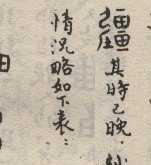 疆其時已晚，
情況略如下表：